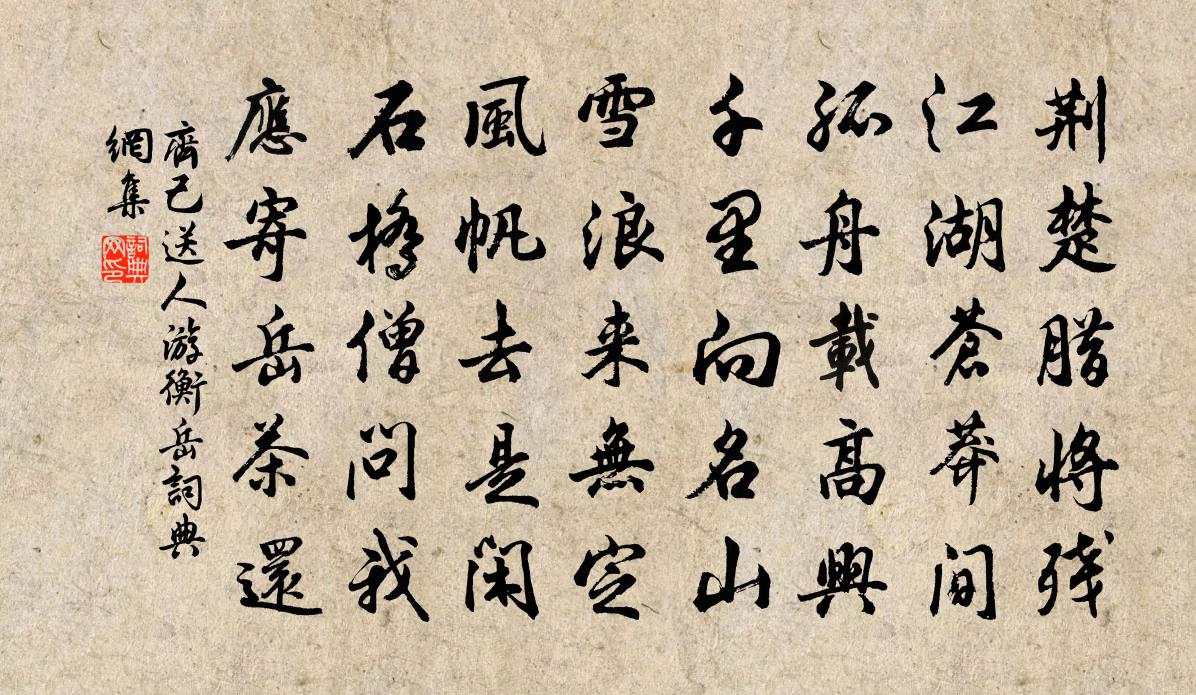 荆楚腊將残
江湖蒼莽間
孤舟載高興
千里向名山
雪浪来無定
風帆去是閑
石橋僧問我
應寄岳茶還
齊己送人游衡岳詞典
網集
詞典网印